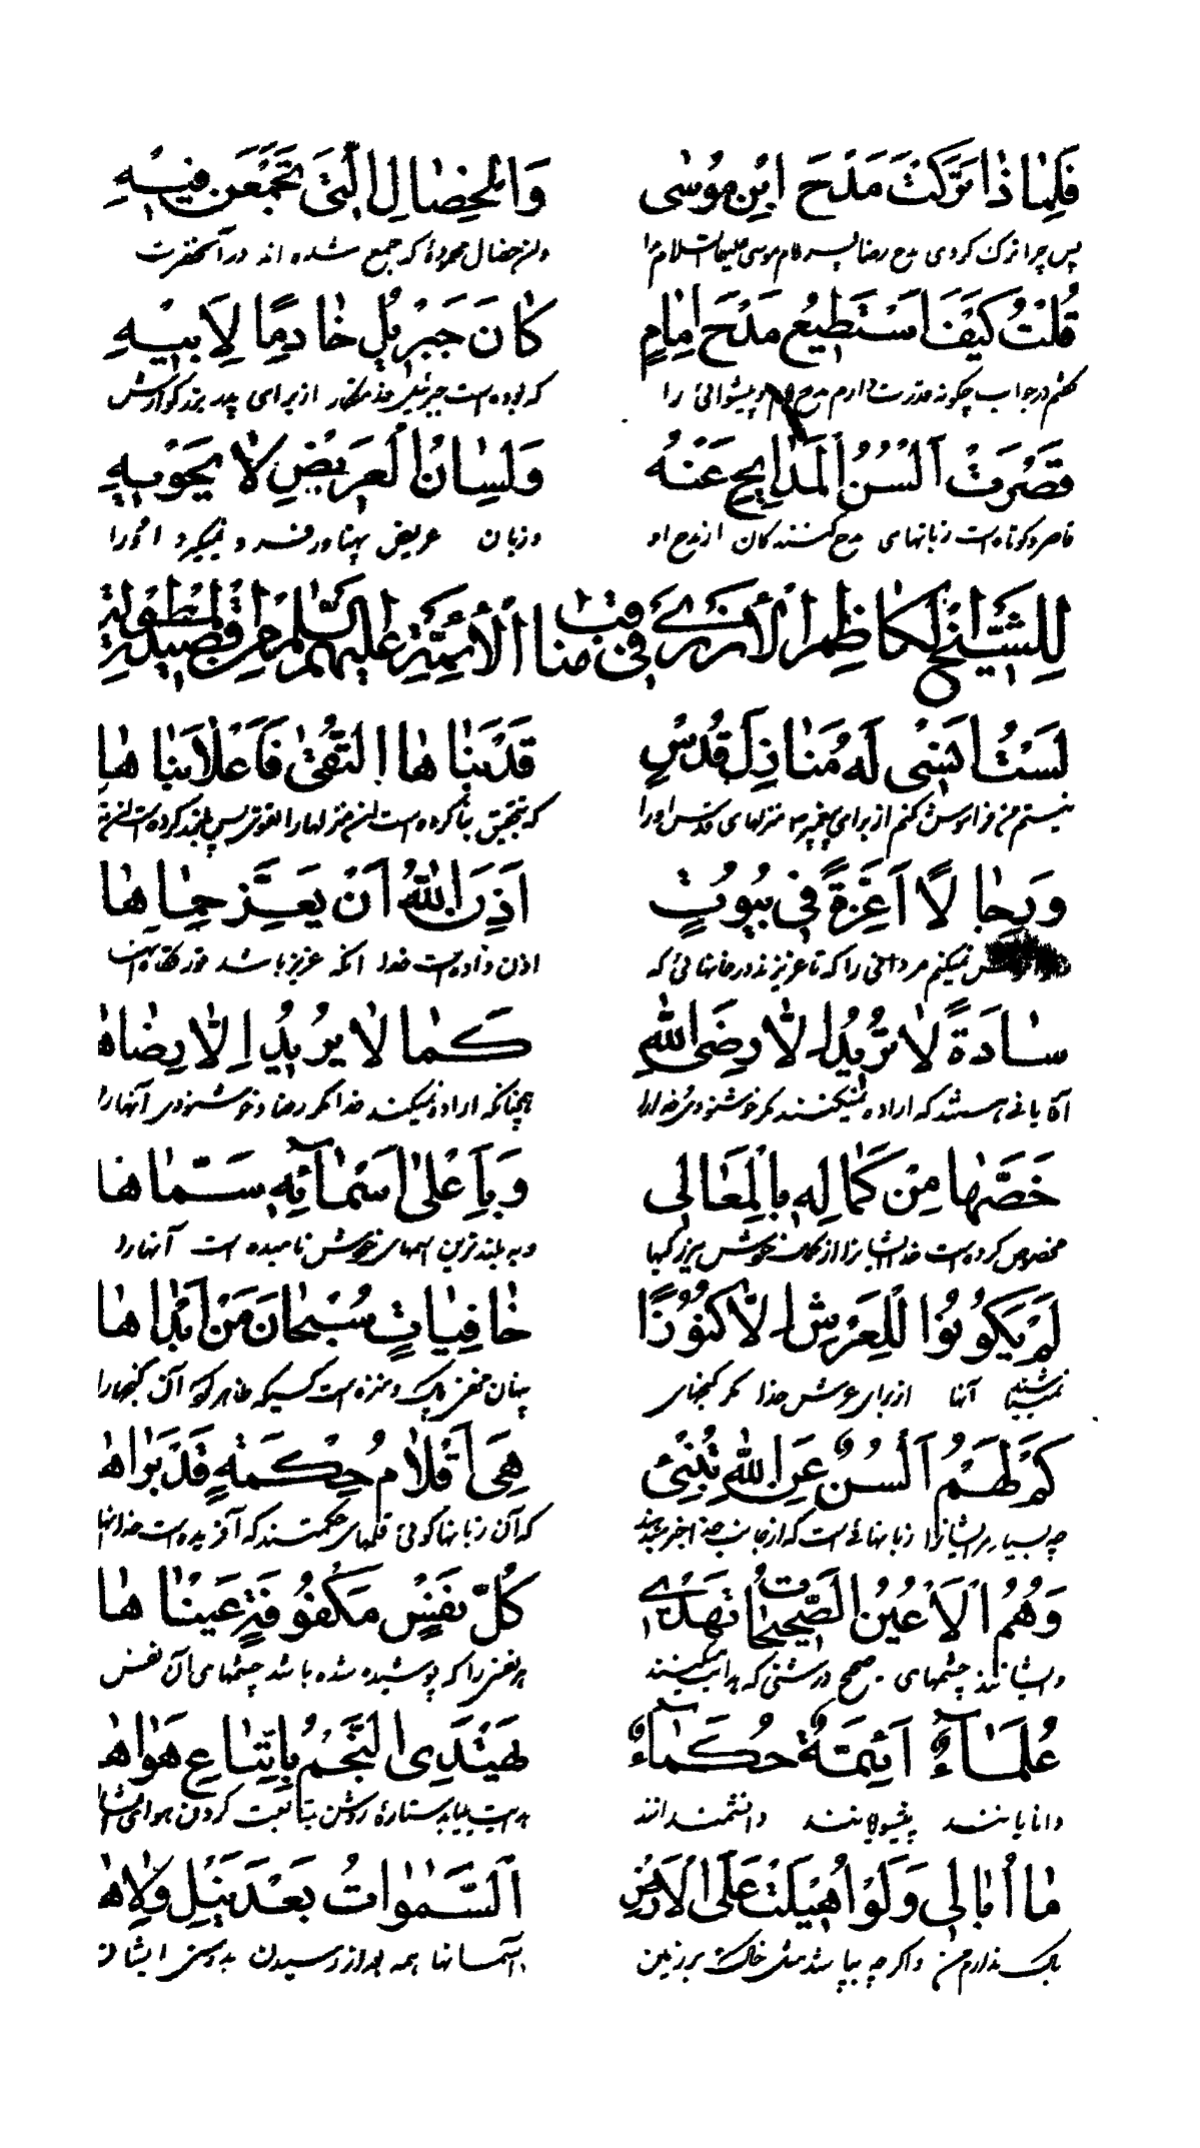 فَلِمَاذَا تَرَكْتَ مَدْحَ ابْنِ مُوسٰى وَالْخِصَالِ الَّتِي تَجَمَّعْنَ فِيهِ
پس چرا ترک کردی مدح رضا پسر امام موسی علیهما السلام را واز خصال محموده که جمع شده اند در آنحضرت
قُلْتُ كَيْفَ اَسْتَطِيعُ مَدْحَ اِمَامٍ كَانَ جَبْرَئِلُ خَادِمًا لِاَبِيهِ
گفتم در جواب چگونه قدرت دارم مدح امام و پیشوائی را که بوده است جبرئیل خدمتکار از برای پدر بزرگوارش
قَصُرَتْ اَلْسُنُ الْمَدَايِحِ عَنْهُ وَلِسَانُ الْعَرِيضِ لَا يَحْوِيهِ
قاصر وکوتاه است زبانهای مدح کنندکان از مدح او وزبان عریض پهناور فرو نمیگیرد او را
لِلشَّيْخِ كَاظِمِ الْاُزْرِيِّ فِي مَنَاقِبِ الْاَئِمَّةِ عَلَيْهِمُ السَّلَامُ مِنْ قَصِيدَتِهِ الْمُطَوَّلَةِ
لَسْتُ اَنْسٰى لَهُ مَنَازِلَ قُدْسٍ قَدْ بَنَاهَا التُّقٰى فَاَعْلَا بَنَاهَا
نیستم من فراموش کنم از برای پیغمبر منزلهای قدس او را که بتحقیق بنا کرده است
وَرِجَالًا اَعِزَّةً فِي بُيُوتٍ اَذِنَ اللّٰهُ اَنْ يَعِزَّ حِمَاهَا
نمیکنم مردانی را که عزیزند در خانهائی که اذن داده است خدا آنکه عزیز باشد
سَادَةً لَا تُرِيدُ اِلَّا رِضَى اللّٰهِ كَمَا لَا يُرِيدُ اِلَّا رِضَاهَ
آقایانی هستند که اراده نمیکنند مگر خوشنودی خدا را همچنانکه اراده نمیکند خدا مگر رضا وخوشنودی آنها را
خَصَّهَا مِنْ كَمَالِهِ بِالْمَعَالِي وَبِاَعْلٰى اَسْمَآئِهِ سَمَّاهَا
مخصوص کرده است خدا ایشانرا از کمالات خویش وبه بلندترین اسمهای خویش نامیده است آنها را
لَمْ يَكُونُوا لِلْعَرْشِ اِلَّا كُنُوزًا خَافِيَاتٍ سُبْحَانَ مَنْ اَبْدَاهَا
نمیباشند آنها از برای عرش خدا مگر گنجهای پنهان مخفی پاک ومنزه است کسیکه ظاهر کرد آن گنجها را
كَمْ لَهُمْ اَلْسُنٌ عَنِ اللّٰهِ تُنْبِئُ هِيَ اَقْلَامُ حِكْمَةٍ قَدْ بَرَاهَ
چه بسیار مر ایشانرا زبانهائی است که از جانب خدا خبر میدهد که آن زبانها گوئی قلمهای حکمتند که آفریده است خدا آنها
وَهُمُ الْاَعْيُنُ الصَّحِيحَاتُ تَهْدِي كُلَّ نَفْسٍ مَكْفُوفَةٍ عَيْنَاهَا
وایشانند چشمهای صحیح درستی که هدایت میکنند هر نفس را که پوشیده شده باشد چشمهای آن نفس
عُلَمَآءٌ اَئِمَّةٌ حُكَمَآءٌ يَهْتَدِي النَّجْمُ بِاِتِّبَاعِ هَوَاهَ
دانایانند پیشوایانند دانشمندانند هدایت مییابد ستارۀ روشن بمتابعت کردن هوای ایشا
مَا اُبَالِي وَلَوْ اُهِيلَتْ عَلَى الْاَرْضِ اَلسَّمٰوَاتُ بَعْدَ نَيْلِ وِلَاهَ
باک ندارم من واگر چه بپاشد مثل خاک بر زمین آسمانها همه بعد از رسیدن بدوستی ایشان